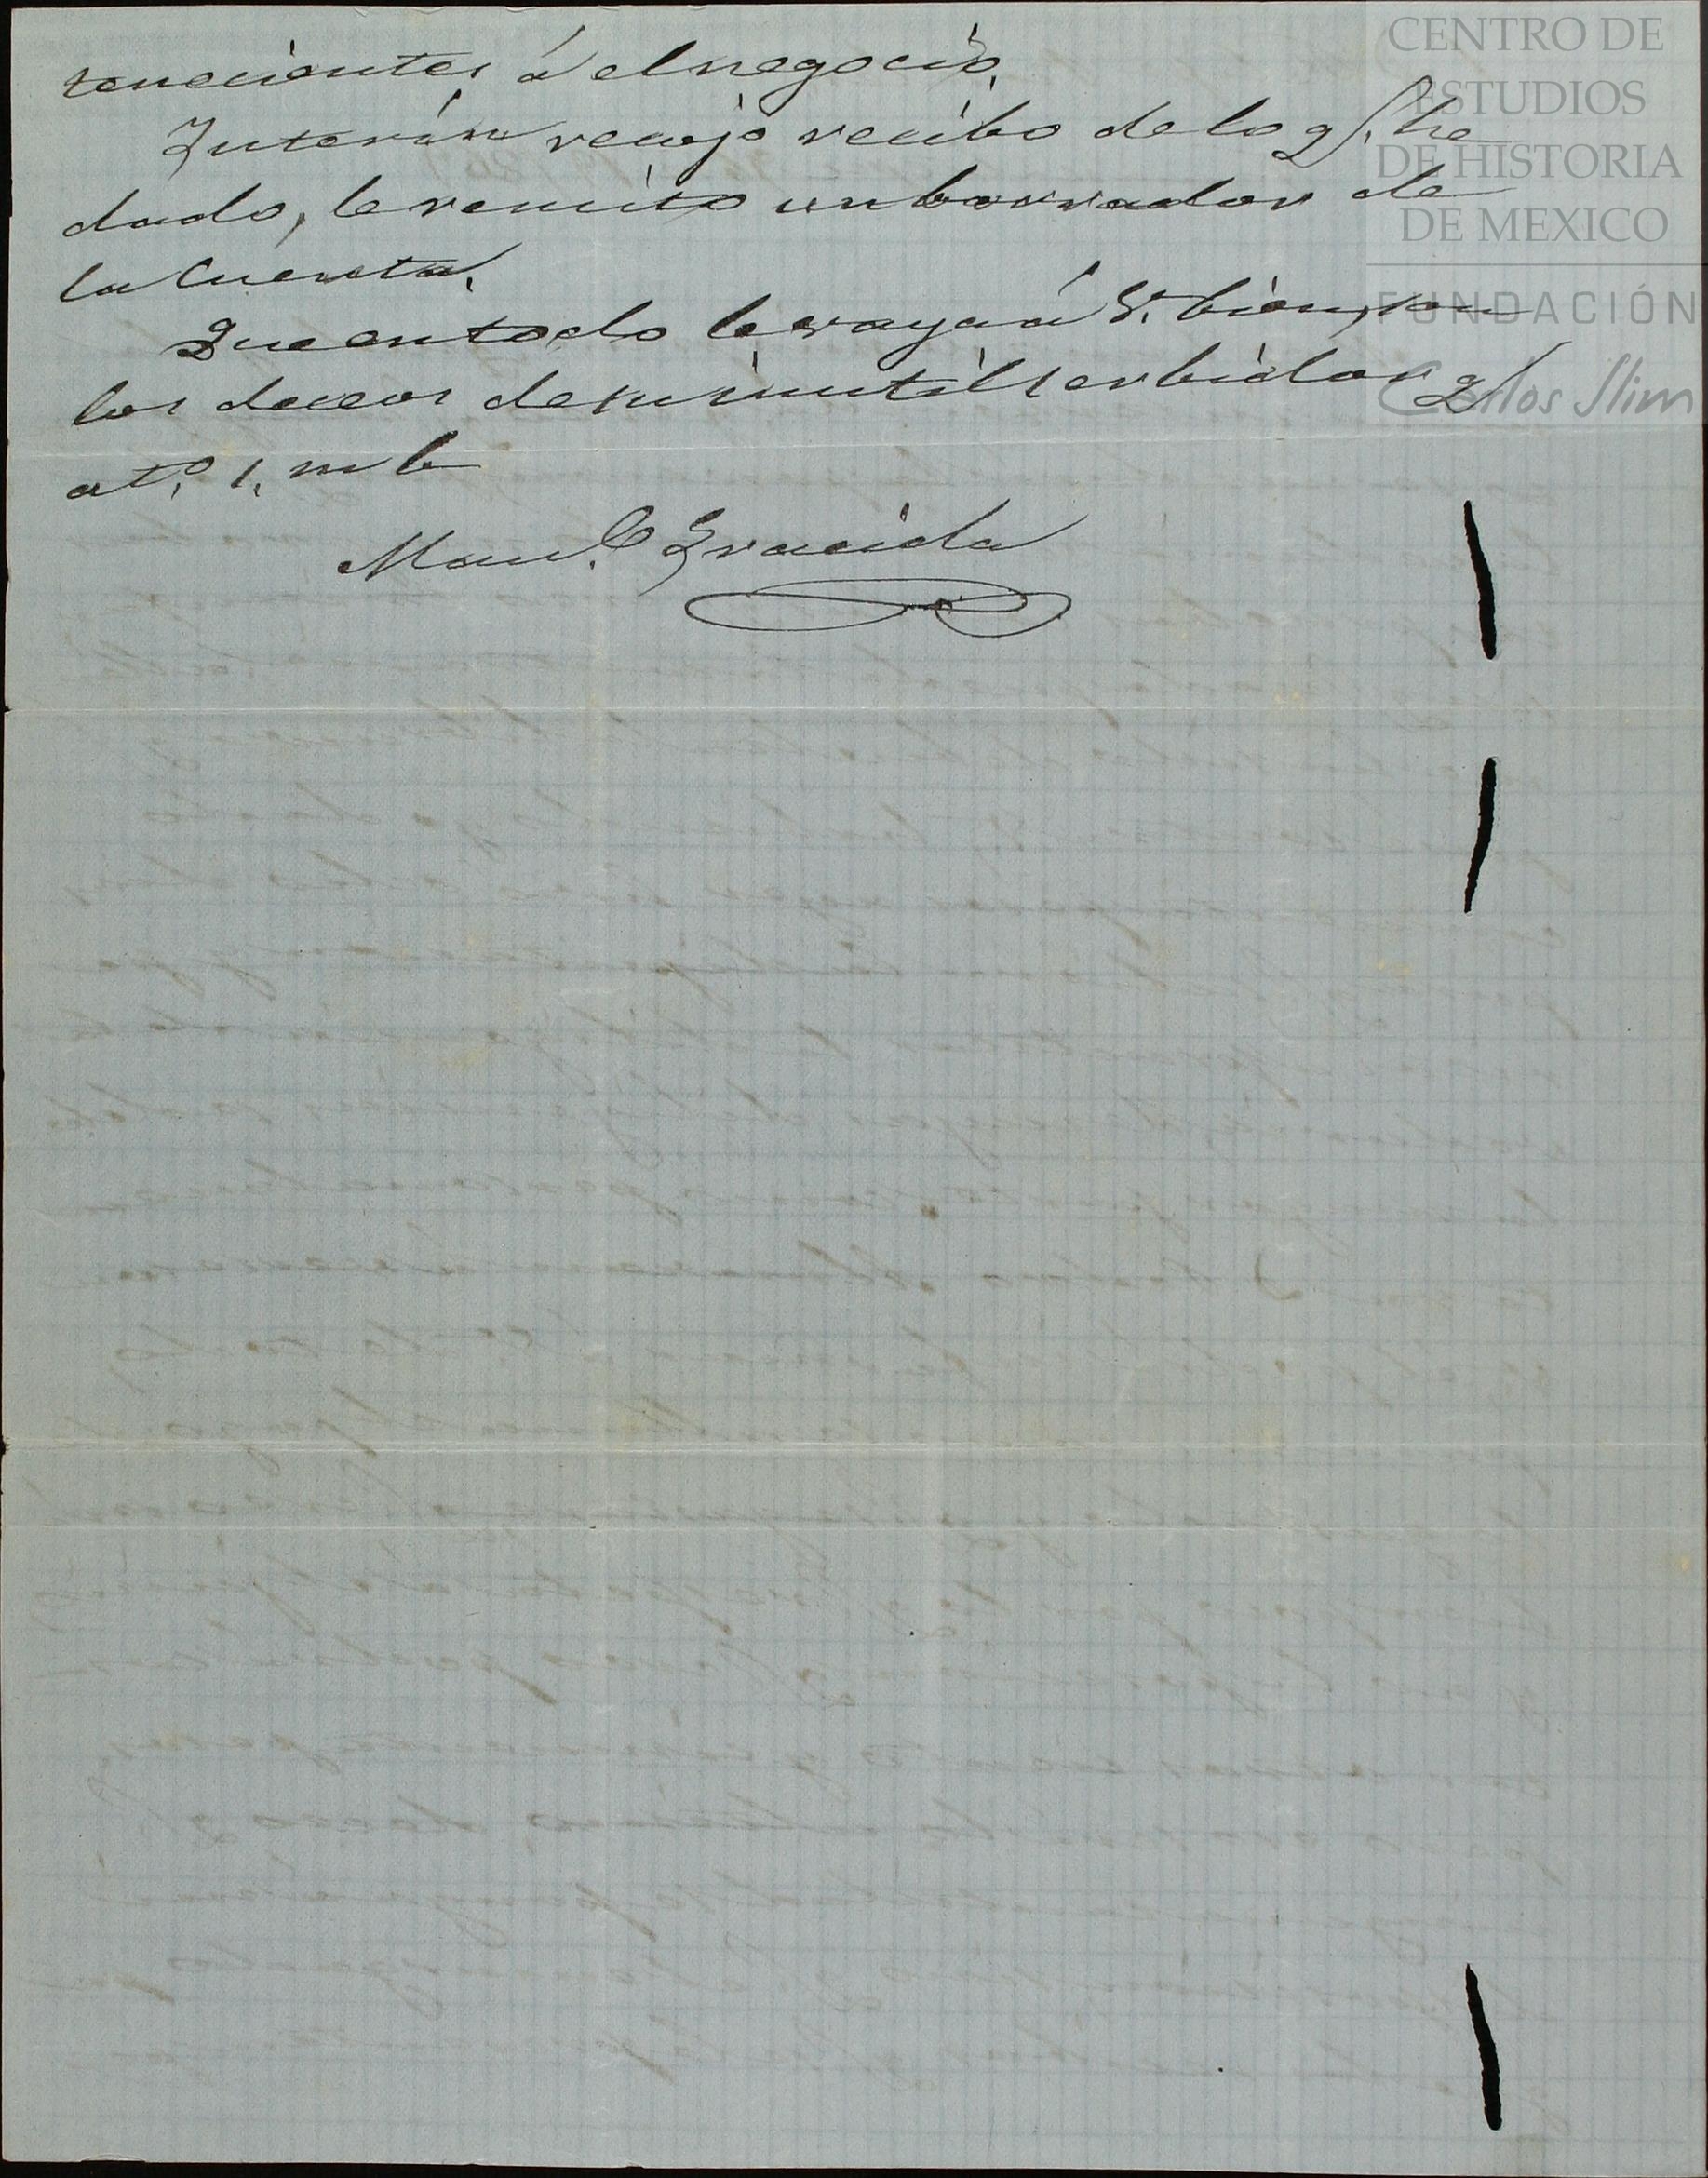 tenecientes á el negocio.
Interin recojo recibo de lo q.e he
dado, le remito un borrador de
la Cuenta.
Que en todo le vaya á V. bien, son
los deceos de su inutil serbidor q.e
at.o s. m b
Man.l Gracida
CENTRO DE
ESTUDIOS
DE HISTORIA
DE MEXICO
FUNDACIÓN
Carlos Slim